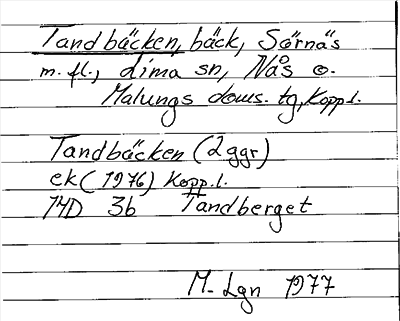 Tandbäcken, bäck, Sörnäs
m. fl., Lima sn, Nås o.
Malungs doms. tg, Kopp.l.
Tandbäcken (2 ggr)
ek (1976) Kopp. l.
14D 3b Tandberget
M. Lgn 1977